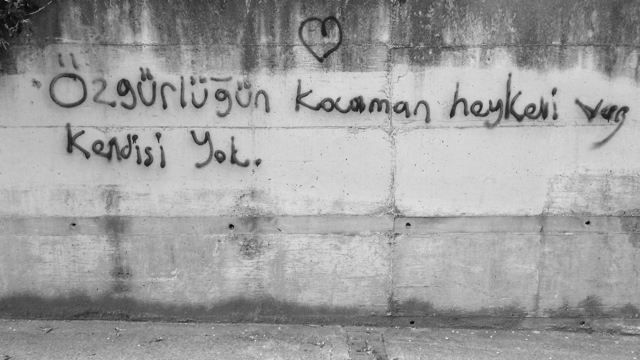 Özgürlüğün kocaman heykeli var
Kendisi Yok.